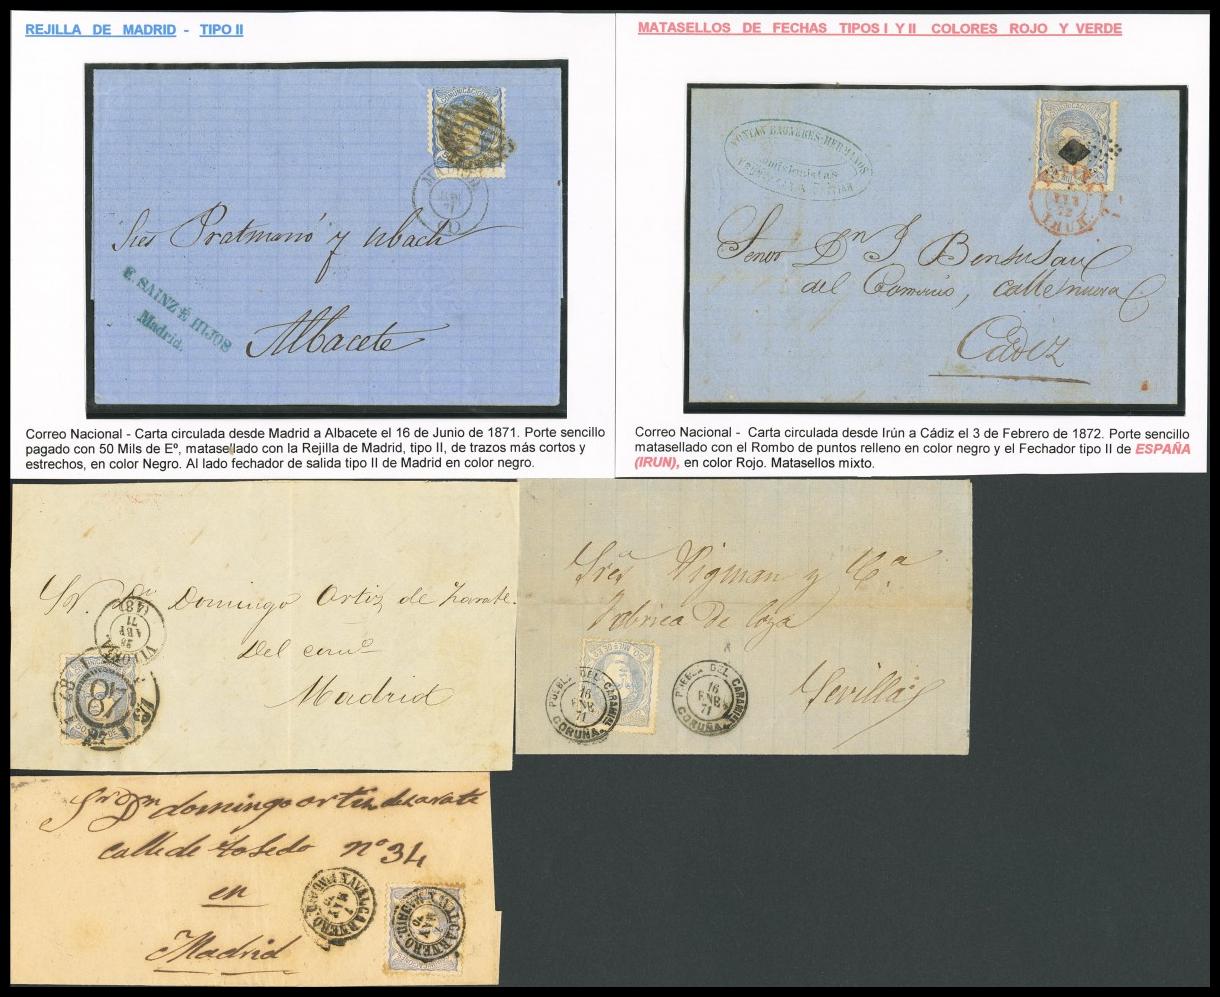 REJILLA DE MADRID - TIPO II
COMUNICACIONES
MADRID
JUN
71
(1)
Sres Pratmanó y Ubach
E. SAINZ É HIJOS
Madrid.
Albacete
Correo Nacional - Carta circulada desde Madrid a Albacete el 16 de Junio de 1871. Porte sencillo
pagado con 50 Mils de Eº, matasellado con la Rejilla de Madrid, tipo II, de trazos más cortos y
estrechos, en color Negro. Al lado fechador de salida tipo II de Madrid en color negro.
MATASELLOS DE FECHAS TIPOS I Y II COLORES ROJO Y VERDE
HERMANOS
Comisionistas
IRUN
Señor Dn J Bensusan
del Comercio, calle nueva
Cádiz
Correo Nacional - Carta circulada desde Irún a Cádiz el 3 de Febrero de 1872. Porte sencillo
matasellado con el Rombo de puntos relleno en color negro y el Fechador tipo II de ESPAÑA
(IRUN), en color Rojo. Matasellos mixto.
Sr. Dn Domingo Ortiz de Zarate.
del comº
Madrid
VITORIA
28
ABR
71
(48)
48
Sres Pigman y Cª
Fabrica de loza
Sevilla
PUEBLA DEL CARAMIÑAL
16
ENE
71
CORUÑA
PUEBLA DEL CARAMIÑAL
16
ENE
71
CORUÑA
Sr Dn domingo ortiz de zarate
calle de toledo nº 34
en
Madrid
NAVALCARNERO
MADRID
NAVALCARNERO
MADRID